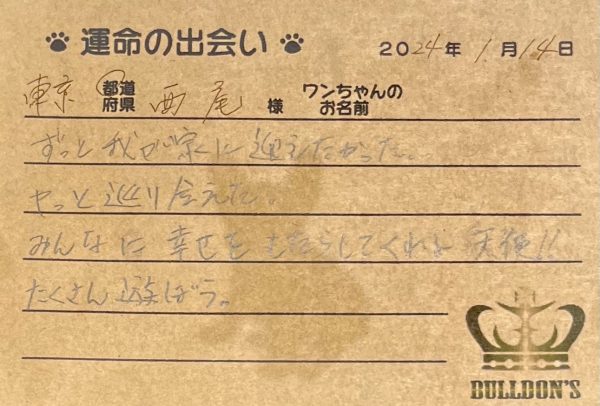 運命の出会い 2024年1月14日
東京 都道府県 西尾 様 ワンちゃんのお名前
ずっと我が家に迎えたかった。
やっと巡り会えた。
みんなに幸せをもたらしてくれる天使!!
たくさん遊ぼう。
BULLDON'S